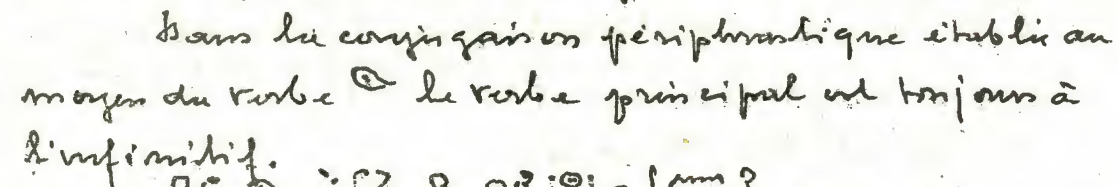 Dans la conjugaison périphrastique établie au
moyen du verbe le verbe principal est toujours à
l'infinitif.